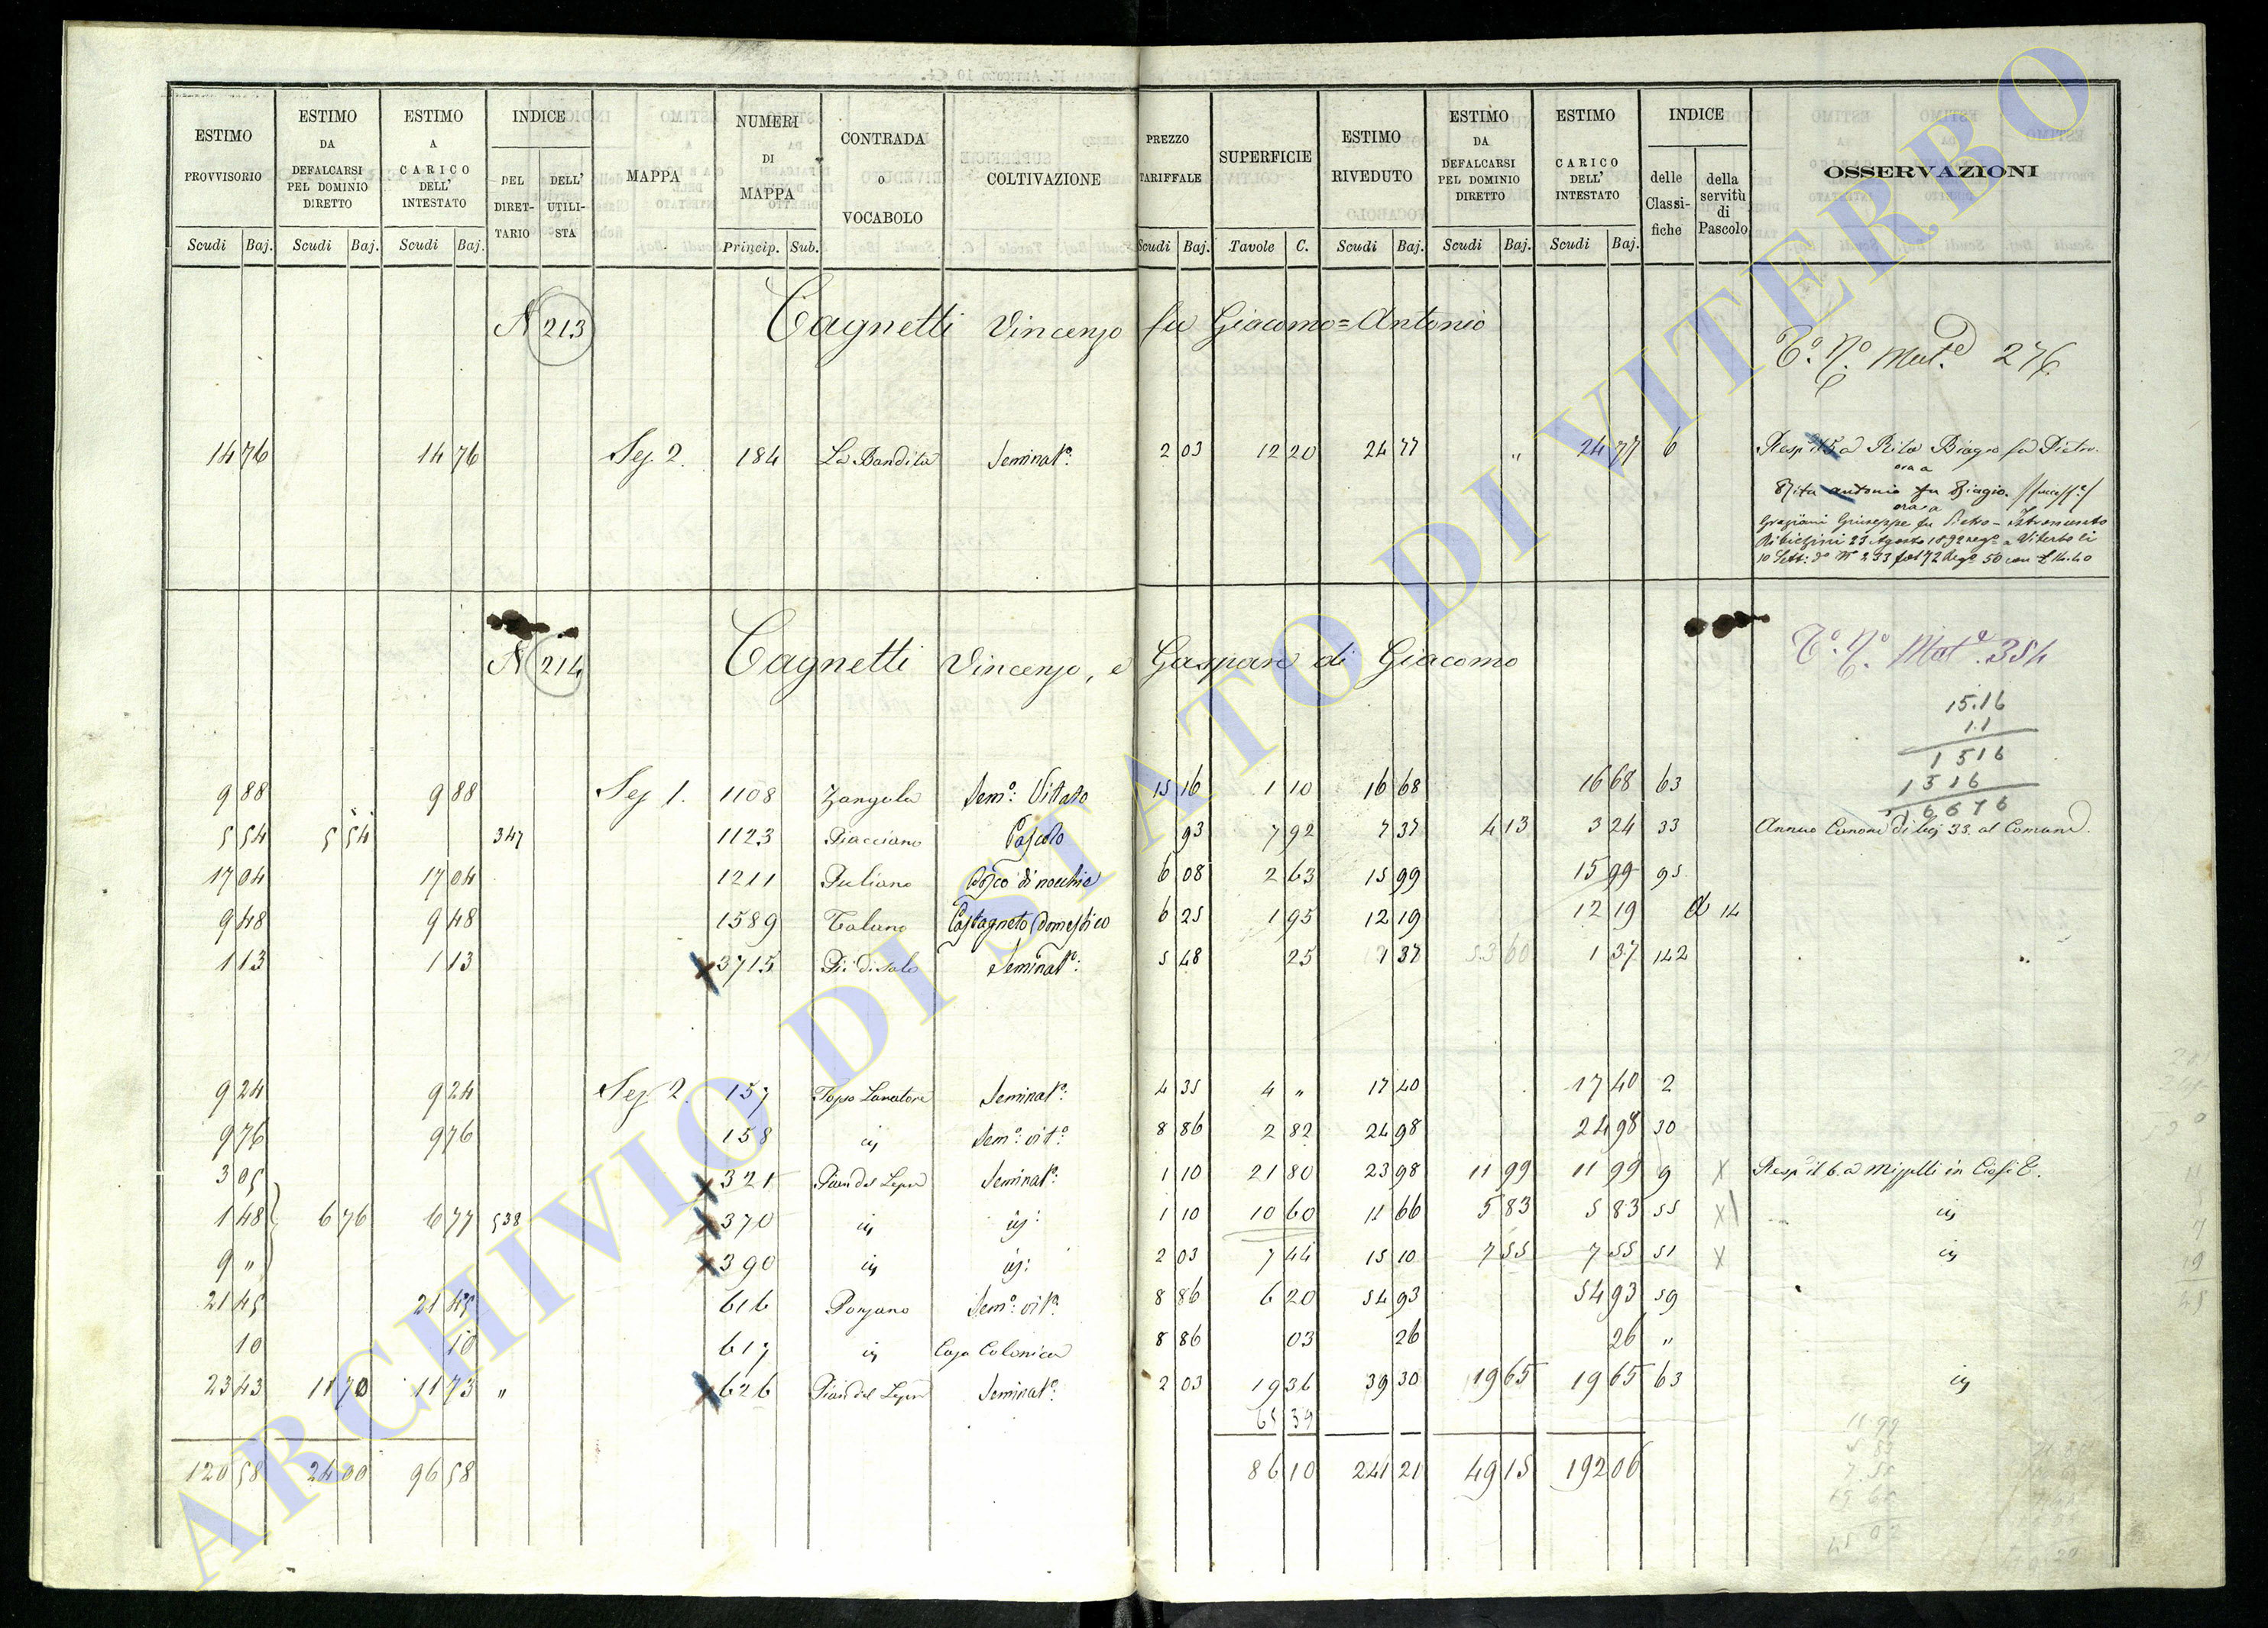 ESTIMO PROVVISORIO Scudi Baj.
ESTIMO DA DEFALCARSI PEL DOMINIO DIRETTO Scudi Baj.
ESTIMO A CARICO DELL' INTESTATO Scudi Baj.
INDICE DEL DIRET-TARIO DELL' UTILI-STA
MAPPA
NUMERI DI MAPPA Princip. Sub.
CONTRADA O VOCABOLO
COLTIVAZIONE
PREZZO TARIFFALE Scudi Baj.
SUPERFICIE Tavole C.
ESTIMO RIVEDUTO Scudi Baj.
ESTIMO DA DEFALCARSI PEL DOMINIO DIRETTO Scudi Baj.
ESTIMO A CARICO DELL' INTESTATO Scudi Baj.
INDICE delle Classi-fiche della servitù di Pascolo
OSSERVAZIONI
N 213 Cagnetti Vincenzo fu Giacomo=Antonio
276
14 76 14 76 Sez. 2. 184 La Bandita Seminato. 2 03 12 20 24 77 " 24 77 6 a Rita Biagio fu Pietro.
ora a
Rita Antonio fu Biagio.
ora a
Graziani Giuseppe fu Pietro - Istrumento
23 Agosto 1892 Viterbo li
N 214 Cagnetti Vincenzo, e Gaspare di Giacomo
354
15.16
1.1
1516
1516
16676
9 88 9 88 Sez. 1. 1108 Zangola Semo: Vitato 15 16 1 10 16 68 16 68 63
5 54 5 54 347 1123 Piacciano Pascolo 93 7 92 7 37 4 13 3 24 33 Annuo Canone di baj 33. al Comune.
17 04 17 04 1211 Puliano Bosco di nocchie 6 08 2 63 15 99 15 99 95
9 48 9 48 1589 Talano Castagneto Domestico 6 25 1 95 12 19 12 19 14
1 13 1 13 3715 Seminato: 5 48 25 1 37 1 37 142
9 24 9 24 Sez. 2. 157 Seminato: 4 35 4 " 17 40 17 40 2
9 76 9 76 158 Semo: vito: 8 86 2 82 24 98 24 98 30
3 05 321 Pian del Lepre Seminato: 1 10 21 80 23 98 11 99 11 99 9 X
1 48 6 76 6 77 538 370 1 10 10 60 11 66 5 83 5 83 55 X
9 " 390 2 03 7 44 15 10 7 55 7 55 51 X
21 45 21 45 616 Ponzano Semo: vito: 8 86 6 20 54 93 54 93 59
10 10 617 Casa Colonica 8 86 03 26 26 "
23 43 11 70 11 73 " 626 Pian del Lepre Seminato: 2 03 19 36 39 30 19 65 19 65 63
120 58 24 00 96 58 86 10 241 21 49 15 192 06
ARCHIVIO DI STATO DI VITERBO